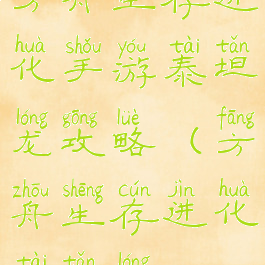 方舟生存进
huà shǒu yóu tài tǎn
化手游泰坦
lóng gōng lüè fāng
龙攻略（方
zhōu shēng cún jìn huà
舟生存进化
tài tǎn lóng